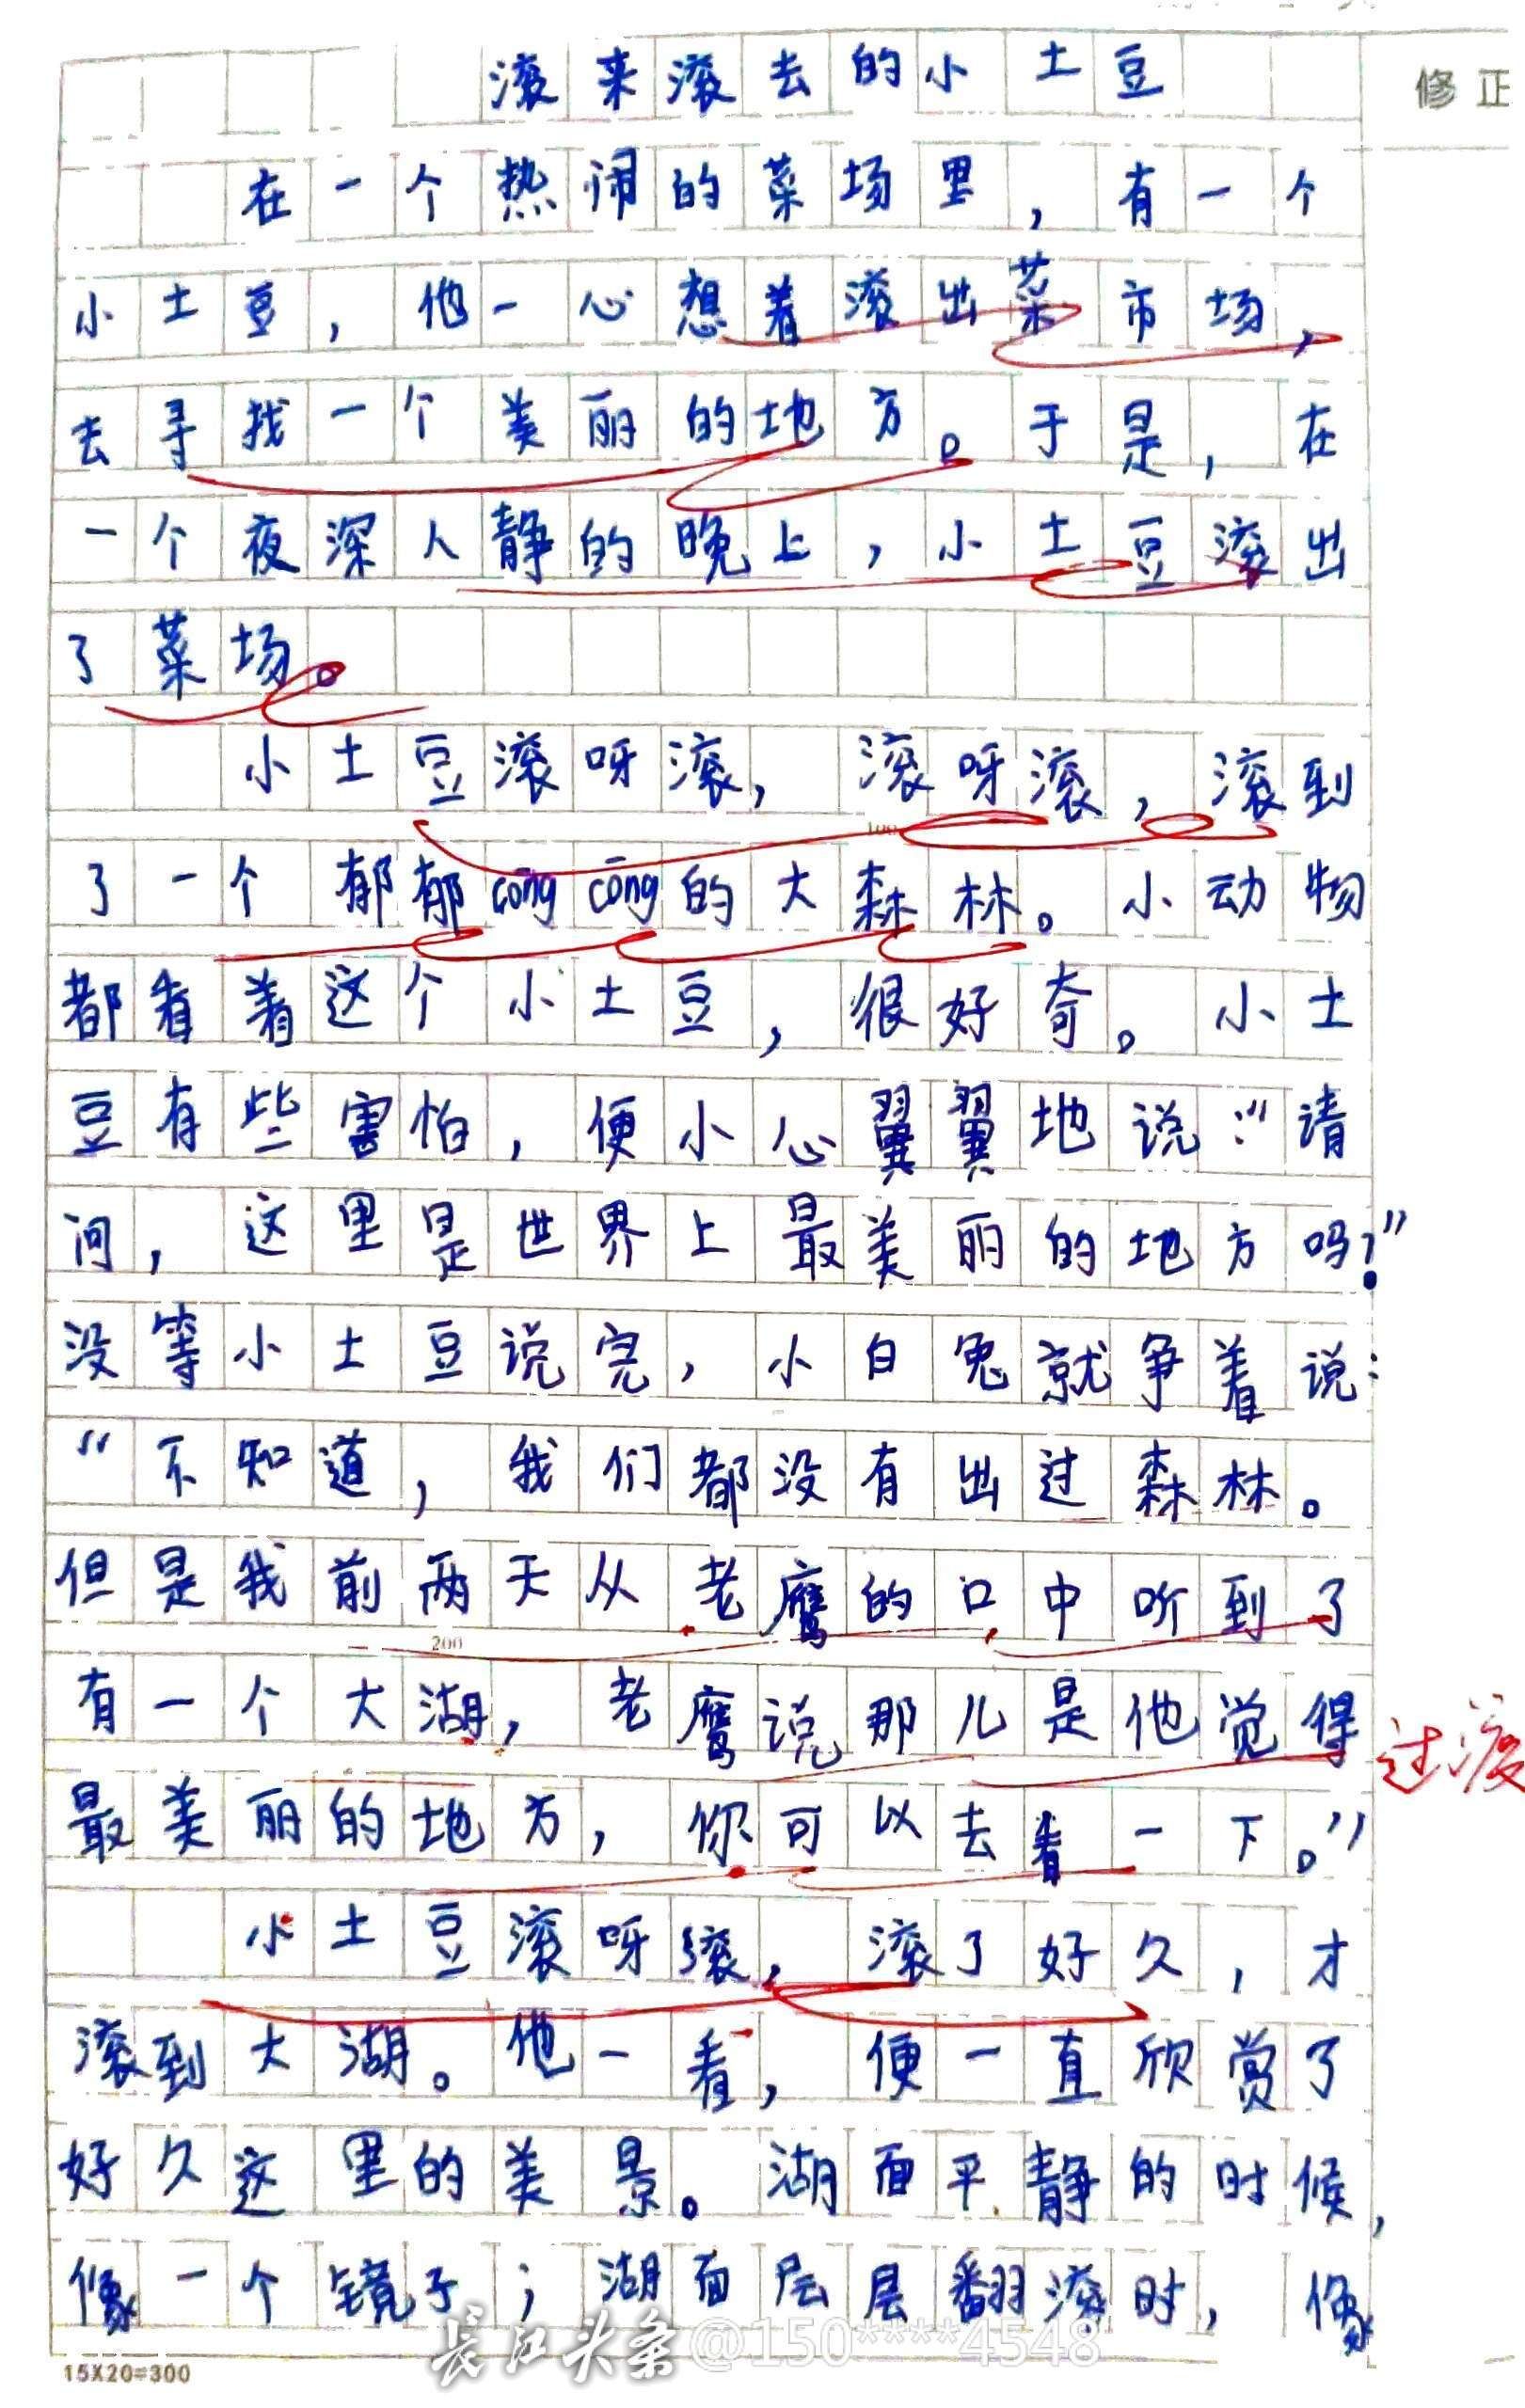 滚来滚去的小土豆
修正
在一个热闹的菜场里，有一个
小土豆，他一心想着滚出菜市场，
去寻找一个美丽的地方。于是，在
一个夜深人静的晚上，小土豆滚出
了菜场。
小土豆滚呀滚，滚呀滚，滚到
100
了一个郁郁cōngcōng的大森林。小动物
都看着这个小土豆，很好奇。小土
豆有些害怕，便小心翼翼地说：“请
问，这里是世界上最美丽的地方吗？”
没等小土豆说完，小白兔就争着说：
“不知道，我们都没有出过森林。
但是我前两天从老鹰的口中听到了
200
有一个大湖，老鹰说那儿是他觉得
过渡
最美丽的地方，你可以去看一下。”
小土豆滚呀滚，滚了好久，才
滚到大湖。他一看，便一直欣赏了
好久这里的美景。湖面平静的时候，
像一个镜子；湖面层层翻滚时，像
长江头条@150****4548
15X20=300